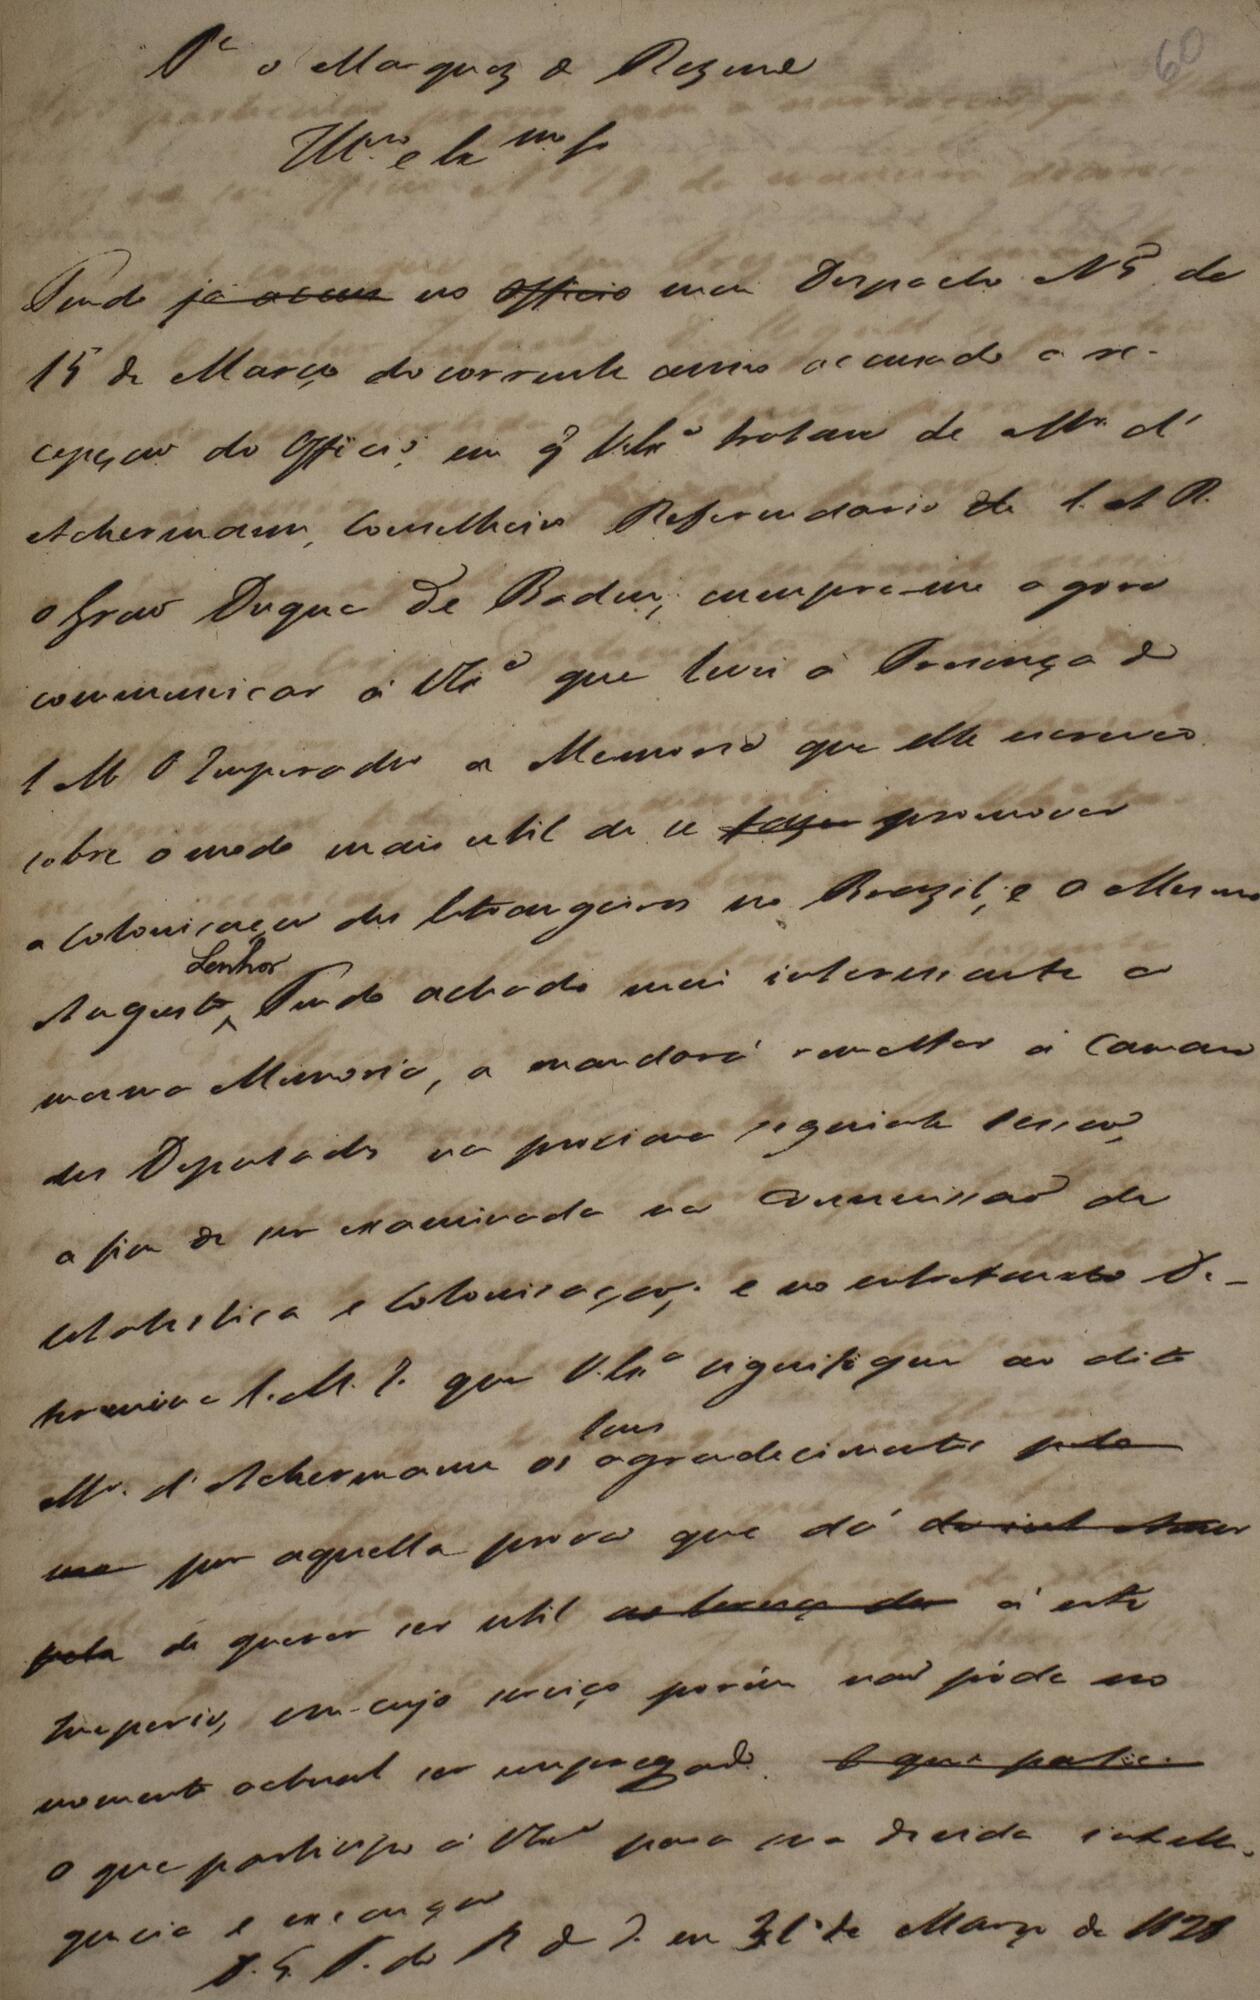 60
Pª o Marquez de Rezende
Illmo e Exmo Sr
Tendo já accu no Officio meu Despacho Nº 5 de
15 de Março do corrente anno accusado a re-
cepção do Officio, em q̃ V. Exª tratou de Mr. d'
Ackermann, Conselheiro Referendario de S. A. R.
o Grão Duque de Baden, cumpre-me agora
communicar á V. Exª que levei á Presença de
S M O Imperador a Memoria que elle escreveo
sobre o modo mais util de se fazer promover
a Colonisação dos Estrangeiros no Brazil, e O Mesmo
Senhor
Augusto Tendo achado mui interessante a
mesma Memoria, a mandará remetter á Camara
dos Deputados na proxima seguinte sessão,
a fim de ser examinada na Commissão de
Estatistica e Colonisação; e no entretanto De-
termina S. M. I. que V. Exª signifique ao dito
Seus
Mr. d'Ackermann os agradecimentos pela
por aquella prova que dá
pela de querer ser util ao serviço do á este
Imperio, em cujo serviço porém não póde no
momento actual ser empregado. O que partic.
O que participo á V. Exª para sua devida intelli-
gencia e execução
D. G. P. do R de J. em 31 de Março de 1828